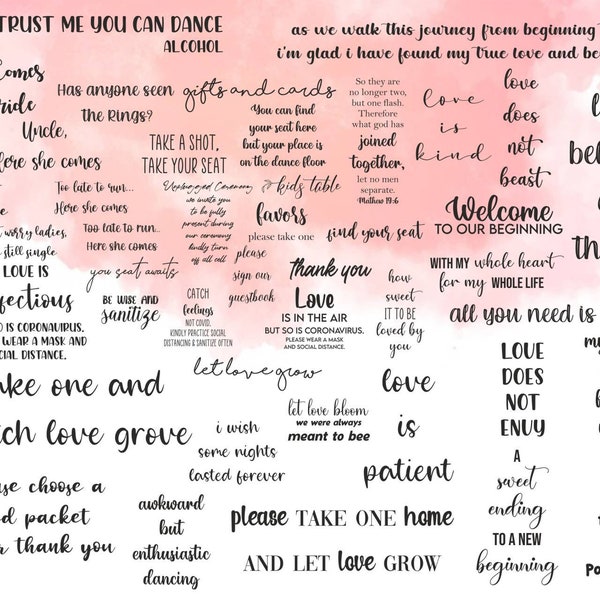 TRUST ME YOU CAN DANCE
ALCOHOL
as we walk this journey from beginning
i'm glad i have found my true love and be
comes
ride
Uncle,
Here she comes
Has anyone seen
the Rings?
gifts and cards
You can find
your seat here
but your place is
on the dance floor
So they are
no longer two,
but one flash.
Therefore
what god has
joined
together,
let no men
separate.
Mathew 19:6
love
is
kind
love
does
not
beast
TAKE A SHOT,
TAKE YOUR SEAT
Too late to run...
Here she comes
Too late to run...
Here she comes
worry ladies,
still single
Unplugged Ceremony
we invite you
to be fully
present during
our ceremony
kindly turn
off all cell
kids table
favors
please take one
find your seat
Welcome
TO OUR BEGINNING
WITH MY whole heart
for my WHOLE LIFE
all you need is
LOVE IS
fectious
IS CORONAVIRUS.
WEAR A MASK AND
SOCIAL DISTANCE.
you seat awaits
BE WISE AND
sanitize
CATCH
feelings
NOT COVID,
KINDLY PRACTICE SOCIAL
DISTANCING & SANITIZE OFTEN
please
sign our
guestbook
thank you
Love
IS IN THE AIR
BUT SO IS CORONAVIRUS.
PLEASE WEAR A MASK
AND SOCIAL DISTANCE.
how
sweet
IT IS TO BE
loved by
you
let love grow
ake one and
tch love grove
i wish
some nights
lasted forever
let love bloom
we were always
meant to bee
love
is
patient
LOVE
DOES
NOT
ENVY
A
sweet
ending
TO A NEW
beginning
se choose a
d packet
r thank you
awkward
but
enthusiastic
dancing
please TAKE ONE home
AND LET love GROW